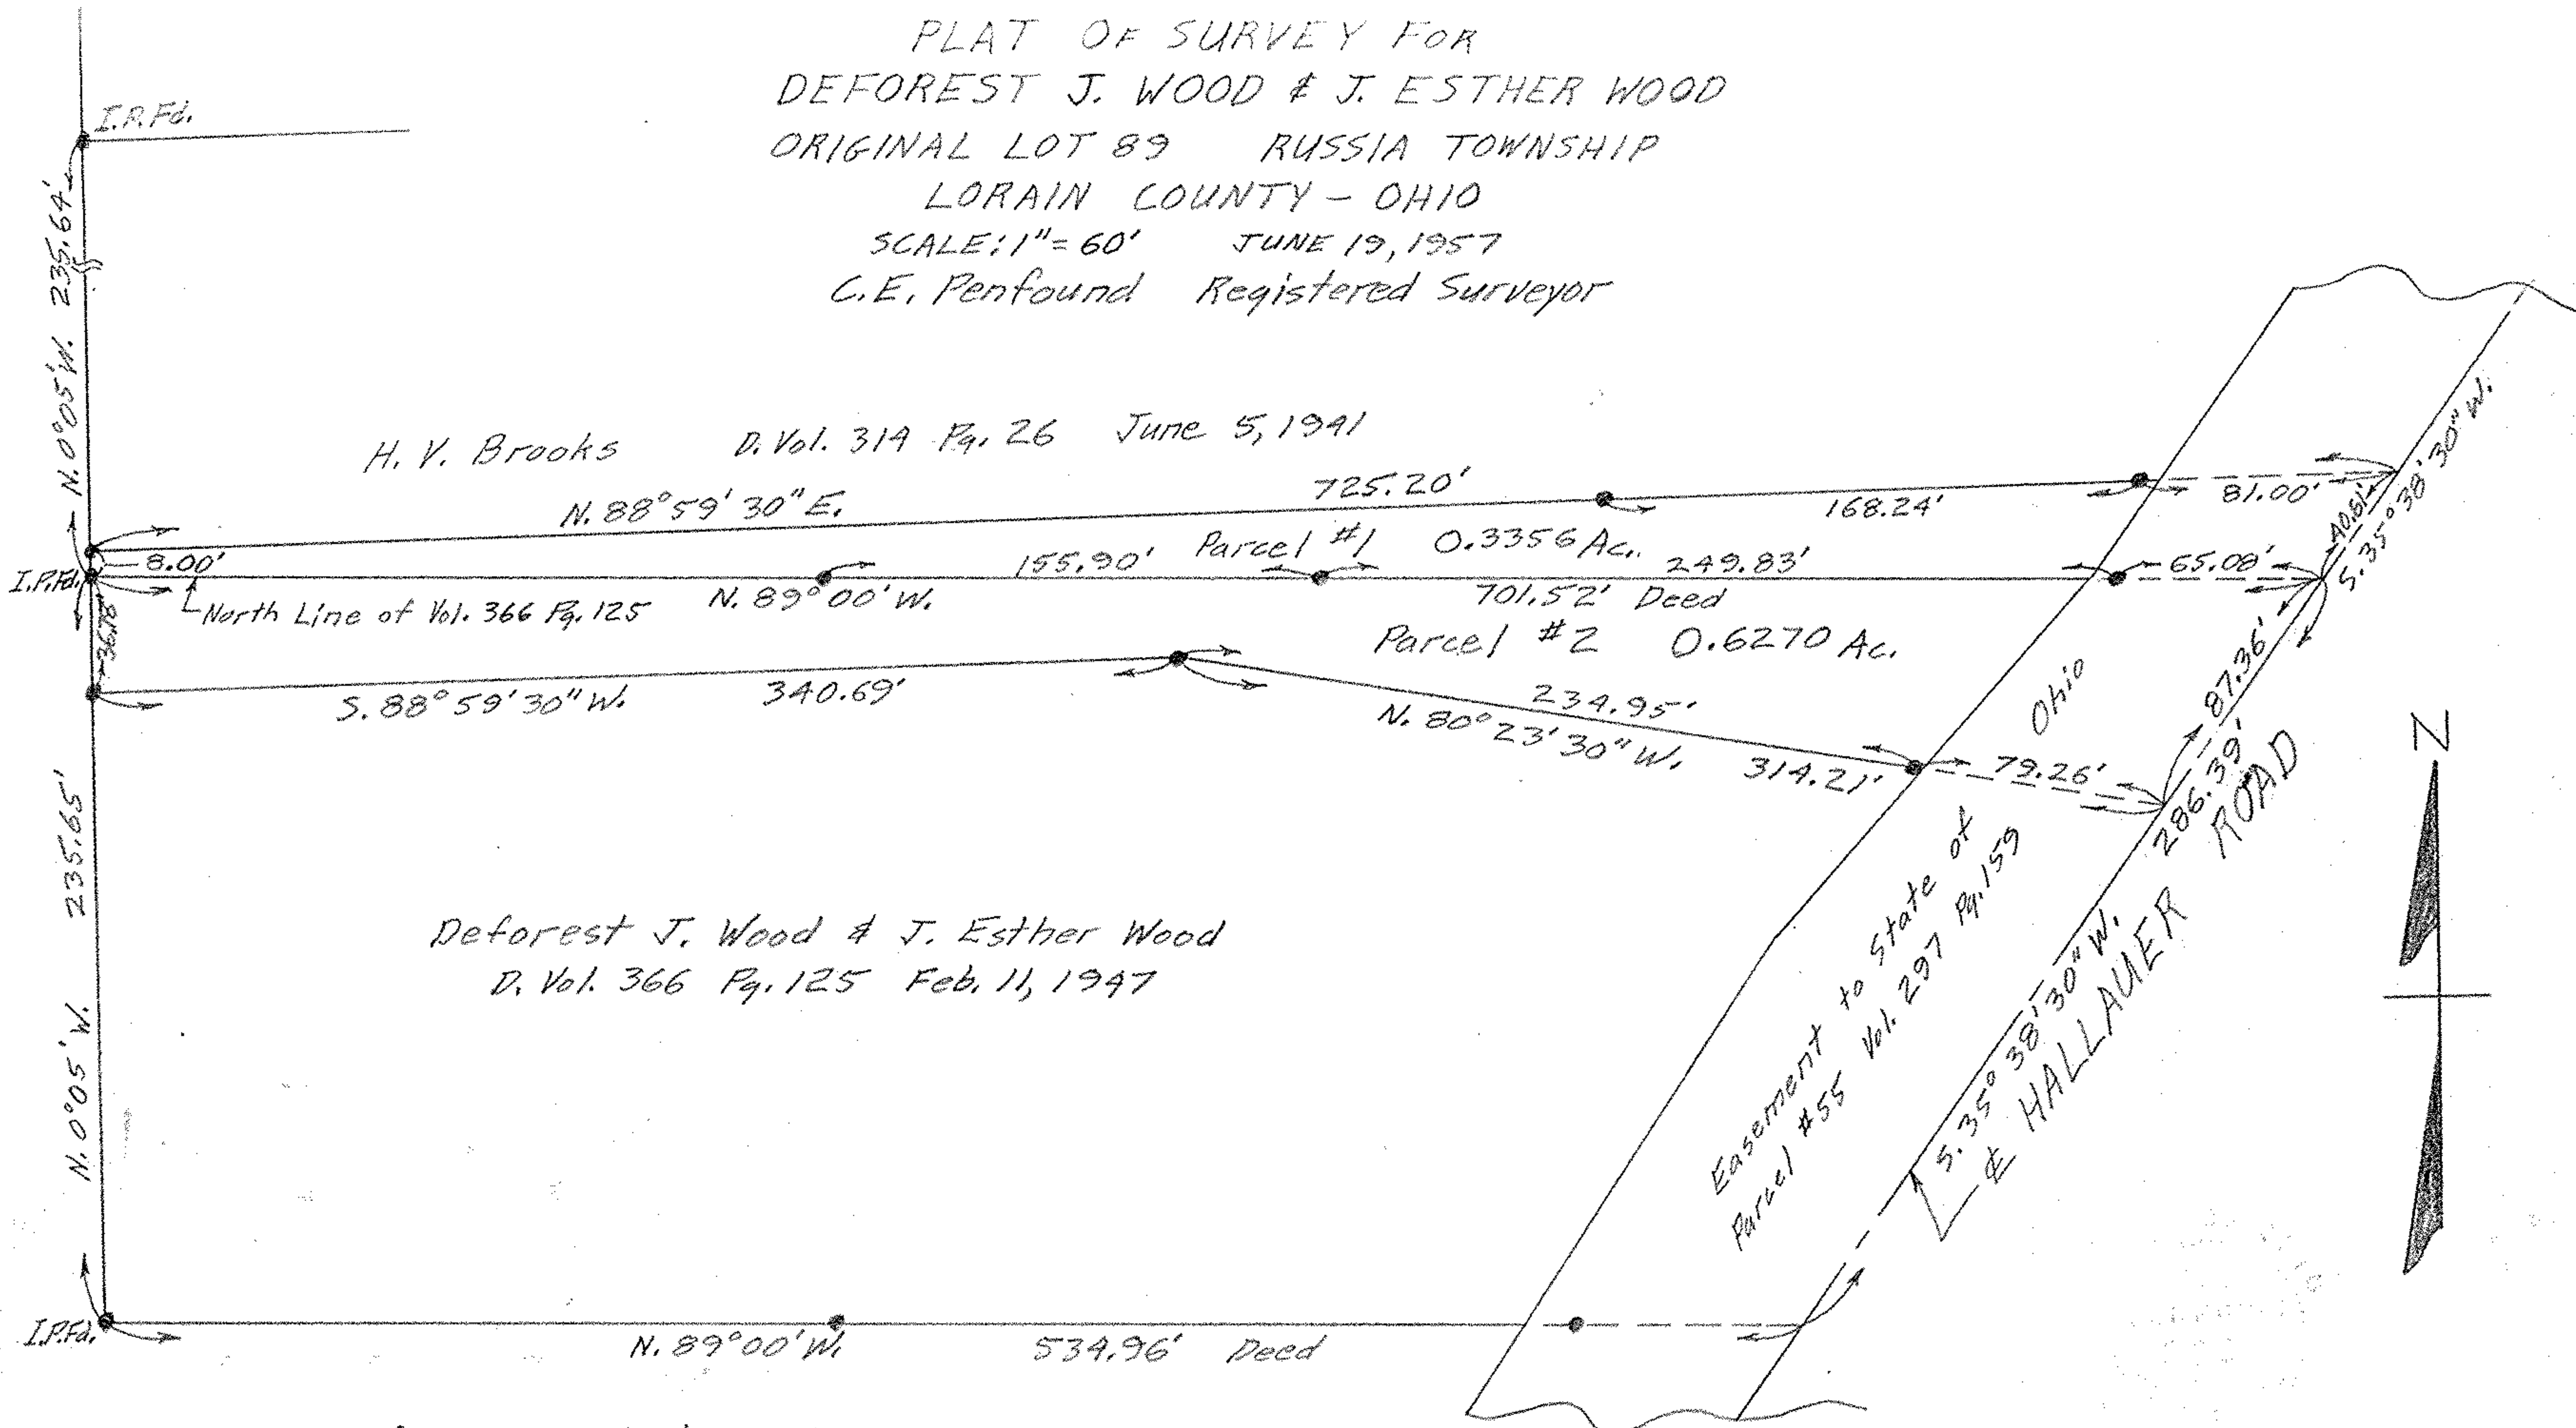 PLAT OF SURVEY FOR
DEFOREST J. WOOD & J. ESTHER WOOD
ORIGINAL LOT 89 RUSSIA TOWNSHIP
LORAIN COUNTY - OHIO
SCALE: 1" = 60' JUNE 19, 1957
C.E. Penfound Registered Surveyor
I.P.Fd.
N. 0°05' W. 235.64'
H. V. Brooks D. Vol. 314 Pg. 26 June 5, 1941
N. 88°59'30" E. 725.20' 168.24' 81.00'
40.61'
S. 35°38'30" W.
8.00' 155.90' Parcel #1 0.3356 Ac. 249.83' 65.08'
I.P.Fd.
North Line of Vol. 366 Pg. 125 N. 89°00' W. 701.52' Deed
36.18'
Parcel #2 0.6270 Ac.
S. 88°59'30" W. 340.69'
234.95'
N. 80°23'30" W. 314.21' 79.26'
87.36'
286.39'
N
N. 0°05' W. 235.65'
Deforest J. Wood & J. Esther Wood
D. Vol. 366 Pg. 125 Feb. 11, 1947
Easement to State of Ohio
Parcel #55 Vol. 297 Pg. 159
S. 35°38'30" W.
℄ HALLAUER ROAD
I.P.Fd.
N. 89°00' W. 534.96' Deed